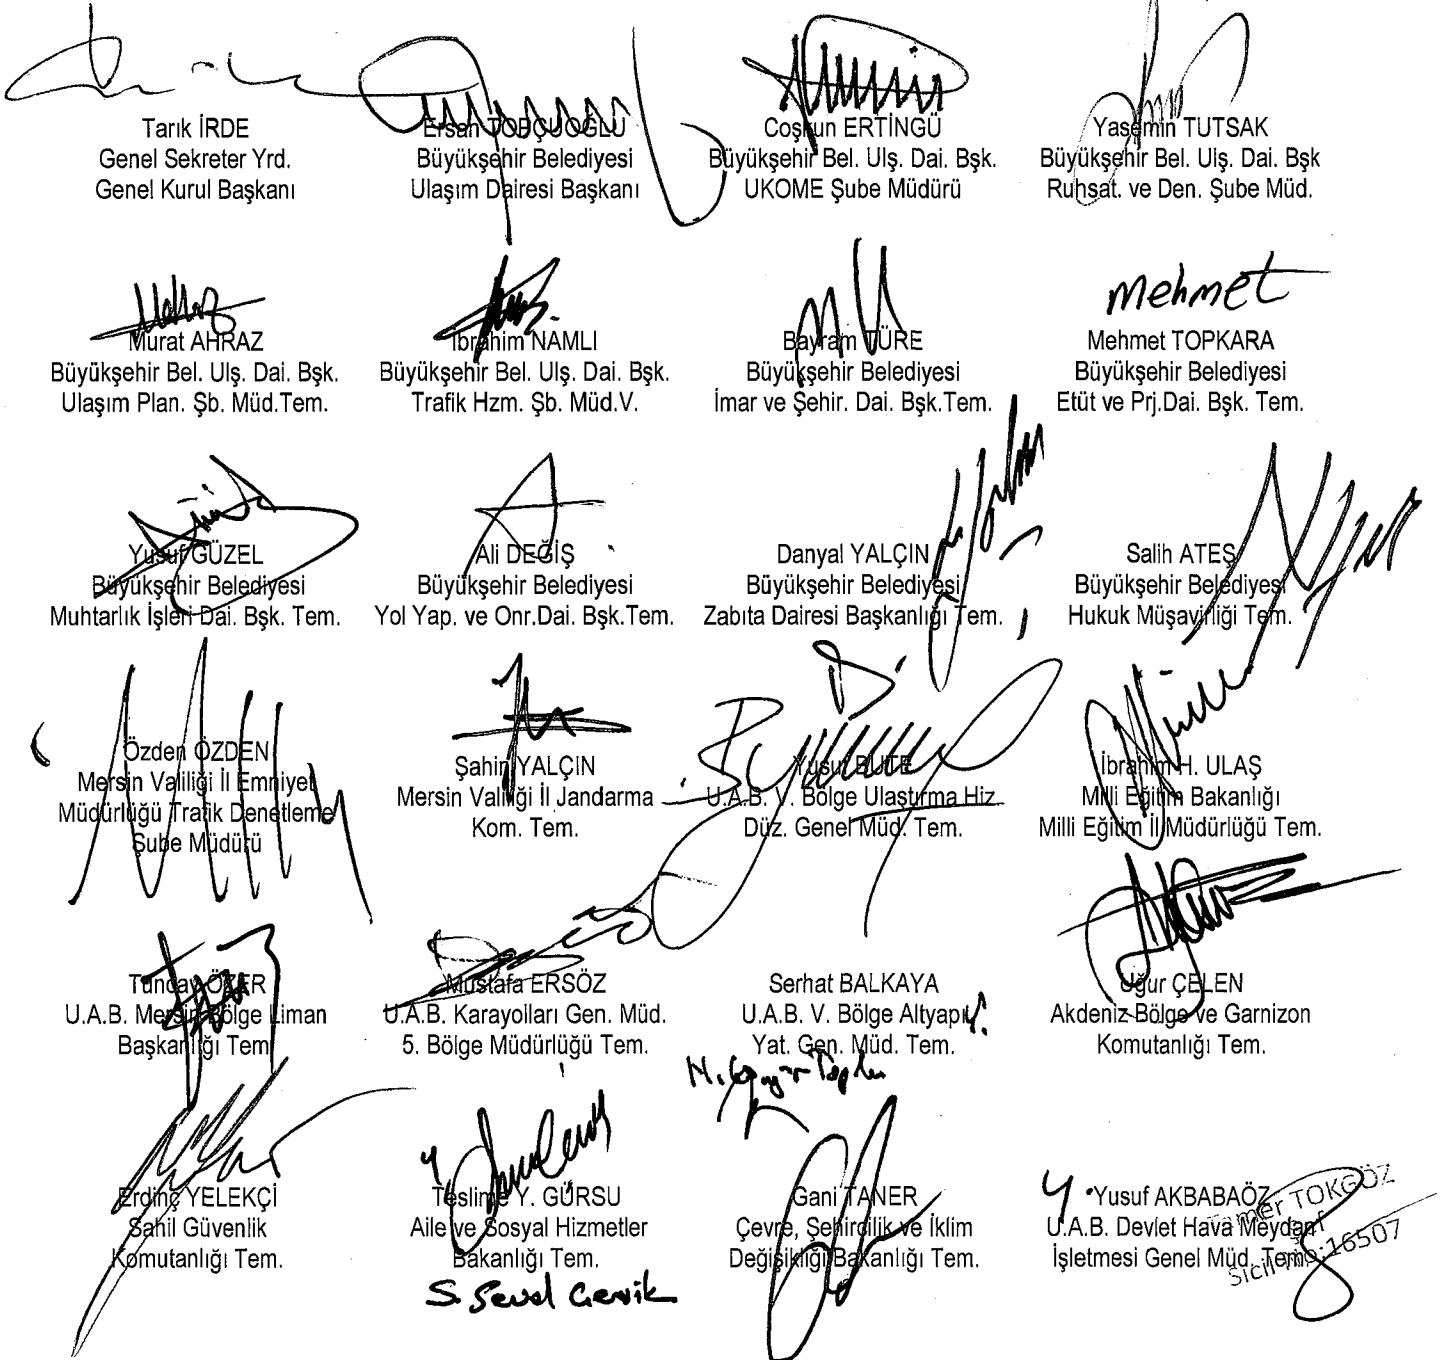 Tarık İRDE
Genel Sekreter Yrd.
Genel Kurul Başkanı
Ersan TOPÇUOĞLU
Büyükşehir Belediyesi
Ulaşım Dairesi Başkanı
Coşkun ERTİNGÜ
Büyükşehir Bel. Ulş. Dai. Bşk.
UKOME Şube Müdürü
Yasemin TUTSAK
Büyükşehir Bel. Ulş. Dai. Bşk
Ruhsat. ve Den. Şube Müd.
Murat AHRAZ
Büyükşehir Bel. Ulş. Dai. Bşk.
Ulaşım Plan. Şb. Müd.Tem.
İbrahim NAMLI
Büyükşehir Bel. Ulş. Dai. Bşk.
Trafik Hzm. Şb. Müd.V.
Bayram TÜRE
Büyükşehir Belediyesi
İmar ve Şehir. Dai. Bşk.Tem.
Mehmet
Mehmet TOPKARA
Büyükşehir Belediyesi
Etüt ve Prj.Dai. Bşk. Tem.
Yusuf GÜZEL
Büyükşehir Belediyesi
Muhtarlık İşleri Dai. Bşk. Tem.
Ali DEĞİŞ
Büyükşehir Belediyesi
Yol Yap. ve Onr.Dai. Bşk.Tem.
Danyal YALÇIN
Büyükşehir Belediyesi
Zabıta Dairesi Başkanlığı Tem.
Salih ATEŞ
Büyükşehir Belediyesi
Hukuk Müşavirliği Tem.
Özden ÖZDEN
Mersin Valiliği İl Emniyet
Müdürlüğü Trafik Denetleme
Şube Müdürü
Şahin YALÇIN
Mersin Valiliği İl Jandarma
Kom. Tem.
Yusuf BUTE
U.A.B. V. Bölge Ulaştırma Hiz.
Düz. Genel Müd. Tem.
İbrahim H. ULAŞ
Milli Eğitim Bakanlığı
Milli Eğitim İl Müdürlüğü Tem.
Tuncay ÖZER
U.A.B. Mersin Bölge Liman
Başkanlığı Tem
Mustafa ERSÖZ
U.A.B. Karayolları Gen. Müd.
5. Bölge Müdürlüğü Tem.
Serhat BALKAYA
U.A.B. V. Bölge Altyapı
Yat. Gen. Müd. Tem.
Uğur ÇELEN
Akdeniz Bölge ve Garnizon
Komutanlığı Tem.
Erdinç YELEKÇİ
Sahil Güvenlik
Komutanlığı Tem.
Teslime Y. GÜRSU
Aile ve Sosyal Hizmetler
Bakanlığı Tem.
Gani TANER
Çevre, Şehircilik ve İklim
Değişikliği Bakanlığı Tem.
Yusuf AKBABAÖZ
U.A.B. Devlet Hava Meydan
İşletmesi Genel Müd. Tem.
TOKGÖZ
Şef
Sicil No:16507